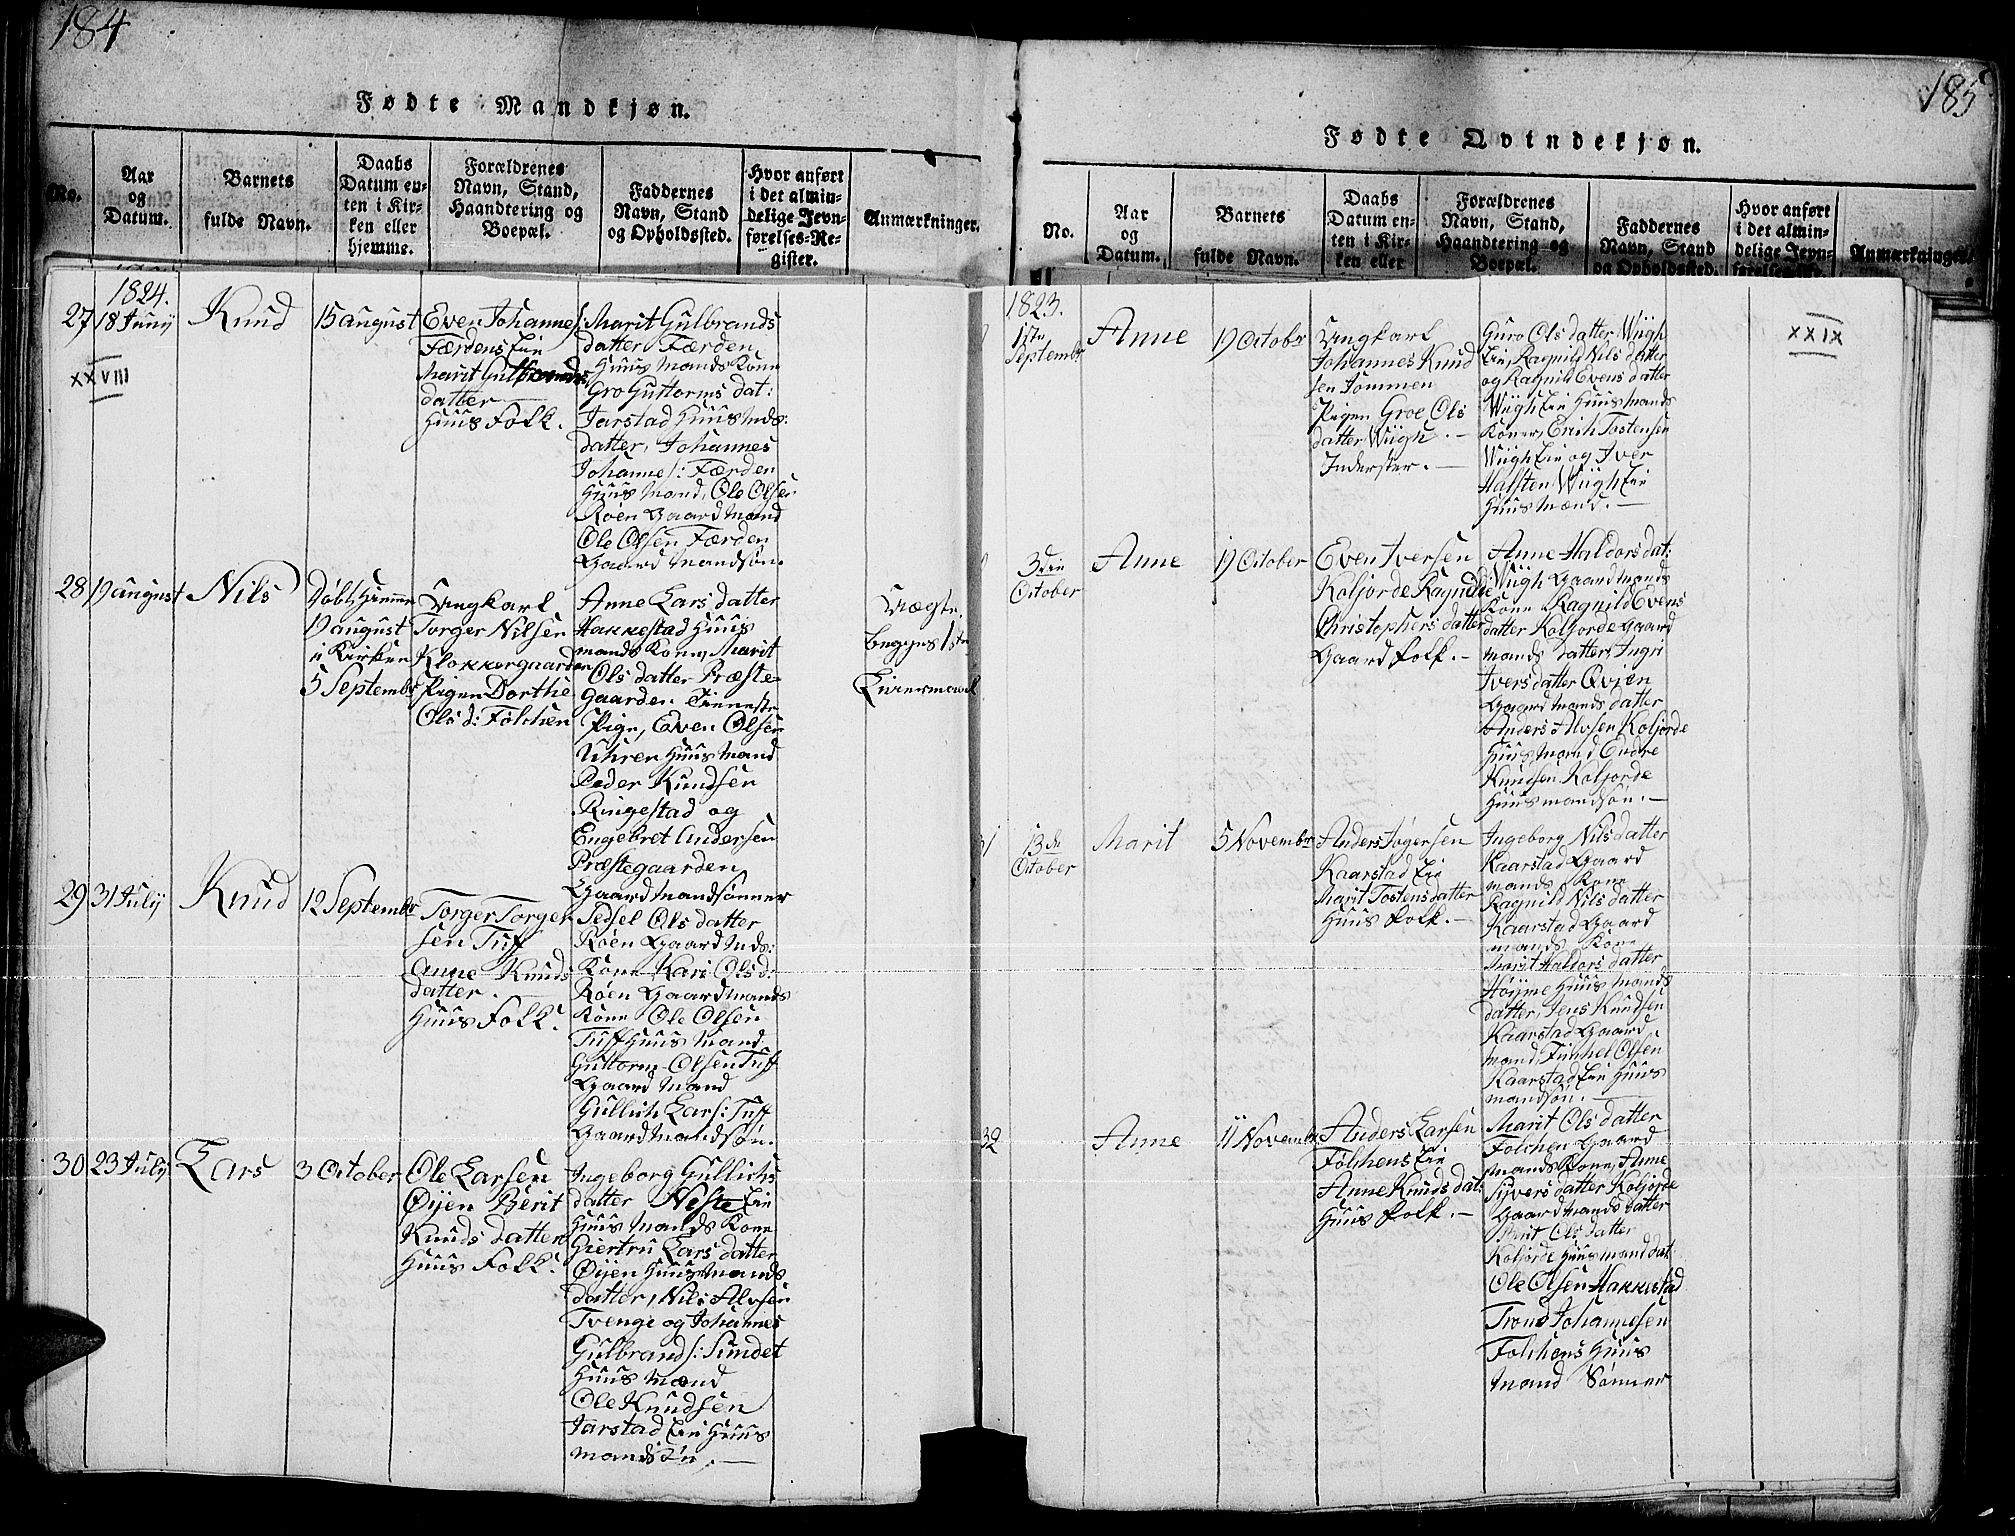 184
Fødte Mandkjøn.
No.
Aar
og
Datum.
Barnets
fulde Navn.
Daabs
Datum en-
ten i Kir-
ken eller
hjemme.
Forældrenes
Navn, Stand,
Haandtering og
Boepæl.
Faddernes
Navn, Stand
og Opholdssted.
Hvor anført
i det almin-
delige Jevn-
førelses-Re-
gister.
Anmærkninger.
1824.
27
18 Juny
XXVIII
Knud
15 august
Even Johannes/:
Færdens Eie
Marit Gulbrands
datter
Huus Folk.
Marit Gulbrands
datter Færden
Huus Mands Kone
Gro Guttorms dat:
Jarstad Huus Mds:
datter, Johannes
Johannes/: Færden
Huus Mand, Ole Olsen
Röen Gaard Mand
Ole Olsen Færden
Gaard Mandsøn.
28
19 august
Nils
Döbt Hiemme
19 august
i Kirken
5 Septembr
Ungkarl
Torger Nilsen
Klokkergaarden
Pigen Dorthe
Ols d: Folchen
Anne Lars datter
Hakkestad Huus
mands Kone, Marit
Ols datter Præste-
Gaarden Tieneste
Pige, Even Olsen
Uhren Huus Mand
Peder Knudsen
Ringestad og
Engebret Andersen
Præstegaarden
Gaard Mandsønner
begges 1ste
Leiermaal
29
31 July
Knud
12 Septembr
Torger Torger
sen Tuff
Anne Knuds
datter.
Huus Folk.
Sidsel Ols datter
Röen Gaard Mds:
Kone Kari Ols d:
Röen Gaard Mands
Kone Ole Olsen
Tuff Huus Mand
Guttorm Olsen Tuff
Gaard Mand
Gullich Lars/: Tuff
Gaard Mandsøn.
30
23 July
Lars
3 October
Ole Larsen
Øijen Berit
Knuds datter
Huus Folk.
Ingeborg Gullichs
datter Neste Eie
Huus Mands Kone
Giertru Lars datter
Øijen Huus Mands
datter, Nils Alvsen
Tvenge og Johannes
Gulbrands/: Sundet
Huus Mænd
Ole Knudsen
Jarstad Eie Huus
mandsøn.
185
Fødte Qvindekjøn.
No.
Aar
og
Datum.
Barnets
fulde Navn.
Daabs
Datum en-
ten i Kir-
ken eller
Forældrenes
Navn, Stand,
Haandtering og
Boepæl.
Faddernes
Navn, Stand
og Opholdssted.
Hvor anført
i det almin-
delige Jevn-
førelses-Re-
Anmærkninger.
1823.
Septembr
Anne
19 Octobr
Ungkarl
Johannes Knud
sen Tommen
Pigen Groe Ols
datter Wiigh.
Inderster.
Guro Ols datter Wiigh
Eie, Ragnild Nils datter
og Ragnild Evens datter
Wiigh Eie Huus Mands
Koner, Erich Tostensen
Wiigh Eie og Iver
Halsten Wiigh Eie
Huus Mænd.
XXIX
3die
October
Anne
19 October
Even Iversen
Koljorde Ragnild
Christophers datter
Gaard Folk.
Anne Haldors dat:
Wiigh Gaard Mands
Kone Ragnild Evens
datter Koljorde Gaard
Mands datter, Ingri
Ivers datter Qvien
Gaard Mands datter
Anders Alvsen Koljorde
Huus Mand Endre
Knudsen Koljorde
Huus Mandsøn.
31
13de
October
Marit
5 Novembr
Anders Torgersen
Kaarstad Eie
Marit Tostens datter
Huus Folk.
Ingeborg Nils datter
Kaarstad Gaard
mands Kone
Ragnild Nils datter
Kaarstad Gaard
mands Kone
Marit Haldors datter
Høijme Huus Mands
datter, Jens Knudsen
Kaarstad Gaard
mand, Finkel Olsen
Kaarstad Eie Huus
mandsøn.
32
Anne
11 Novembr
Anders Larsen
Folchens Eie
Anne Knuds dat:
Huus Folk.
Marit Ols datter
Folchen Gaard
Mands Kone, Anne
Syvers datter Koljorde
Gaard Mands datter
Marit Ols datter
Koljorde Huus mand dat
Ole Olsen Hakkestad
Trond Johannesen
Folchens Huus
Mand Sønner